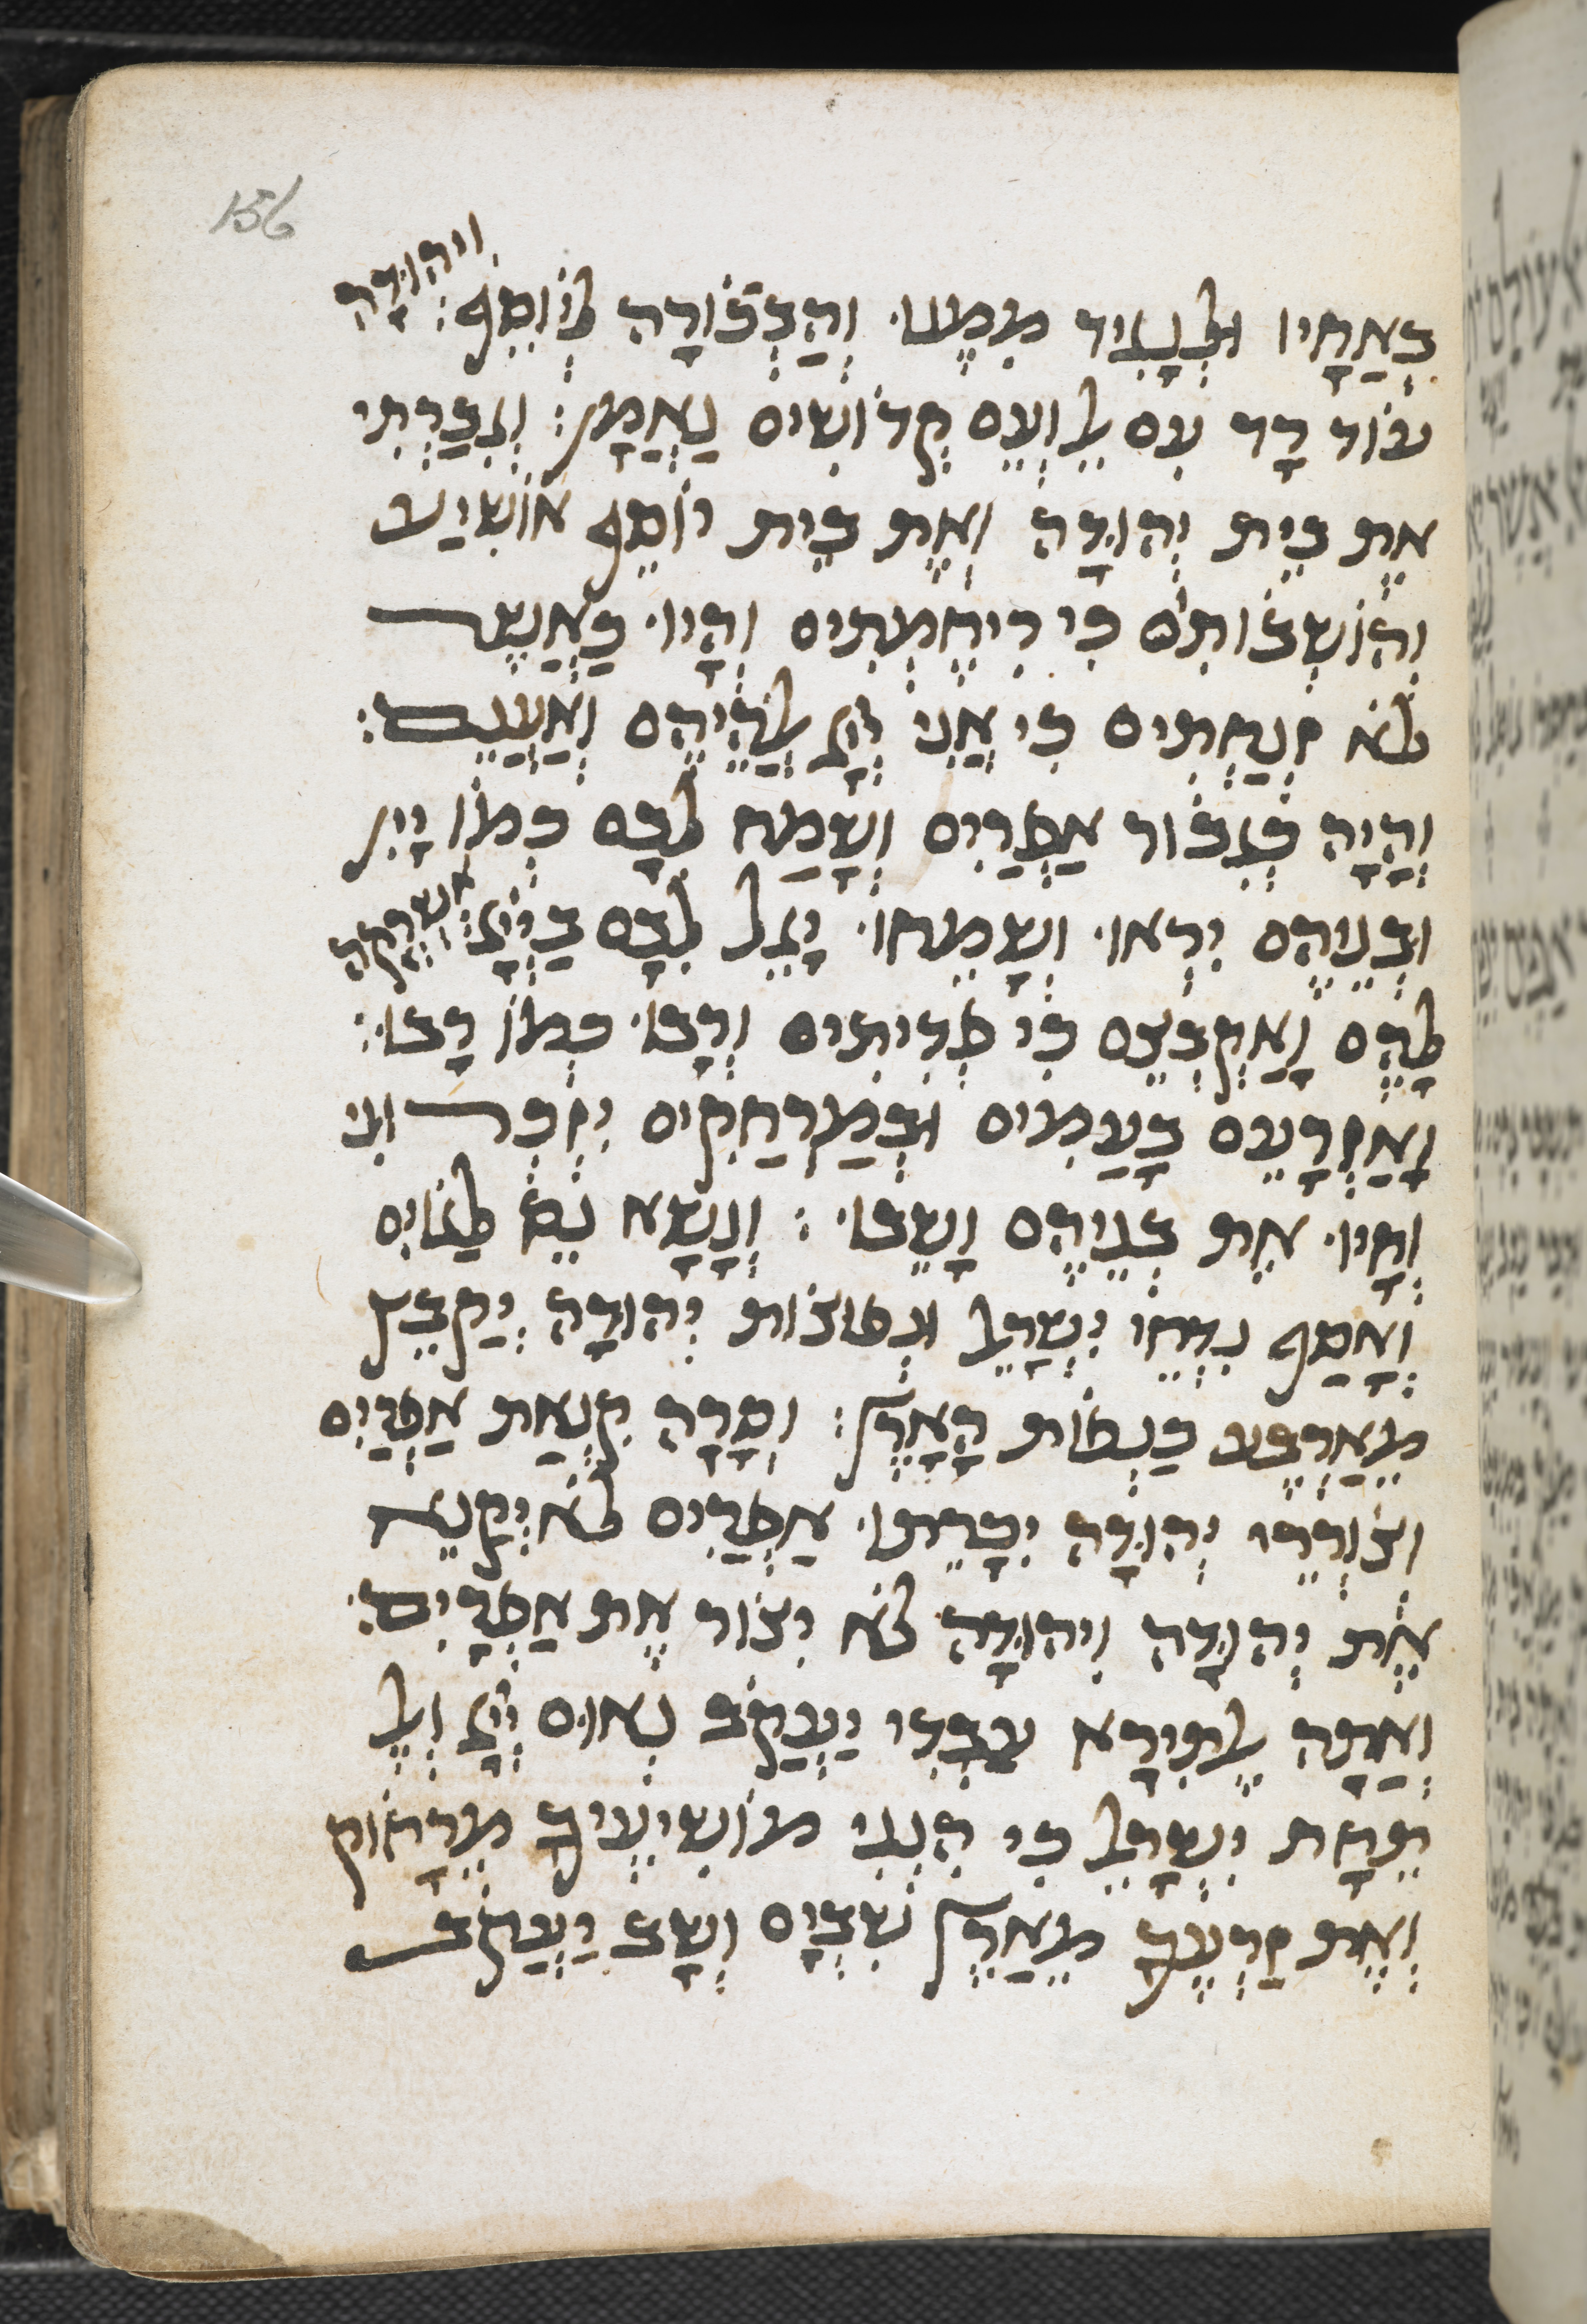 156
בְאַחָיו וּלְנָגִיד מִמֶנוּ וְהַבְכוֹרָה לְיוֹסֵף: וִיהוּדָה
עוֹד רָד עִם אֵל וְעִם קְדוֹשִים נֶאֱמָן: וְגִבַרְתִי
אֶת בֵית יְהוּדָה וְאֶת בֵית יוֹסֵף אוֹשִיעַ
וְהוֹשְבוֹתִם כִי רִיחַמְתִים וְהָיוּ כַאֲשֶר
לֹא זְנַחְתִים כִי אֲנִי יְיָ אֱלֹהֵיהֶם וְאֶעֱנֵם:
וְהָיָה כְגִבוֹר אֶפְרַיִם וְשָמַח לִבָם כְמוֹ יָיִן
וּבְנֵיהֶם יִרְאוּ וְשָמֵחוּ יָגֵל לִבָם בַייָ: אֶשְרְקָה
לָהֶם וַאֲקַבְצֵם כִי פְדִיתִים וְרָבוּ כְמוֹ רָבוּ:
וְאֶזְרָעֵם בָעַמִים וּבְמֶרְחַקִים יִזְכְרוּנִי
וְחָיוּ אֶת בְנֵיהֶם וָשָבוּ: וְנָשָא נֵס לַגוֹיִם
וְאָסַף נִדְחֵי יִשְרָאֵל וּנְפוּצוֹת יְהוּדָה יְקַבֵץ
מֵאַרְבַע כַנְפוֹת הָאָרֶץ: וְסָרָה קִנְאַת אֶפְרַיִם
וְצוֹרְרֵי יְהוּדָה יִכָרֵתוּ אֶפְרַיִם לֹא יְקַנֵא
אֶת יְהוּדָה וִיהוּדָה לֹא יָצוֹר אֶת אֶפְרָיִם:
וְאַתָה אַל תִירָא עַבְדִי יַעֲקֹב נְאוּם יְיָ וְאַל
תֵחָת יִשְרָאֵל כִי הִנְנִי מוֹשִיעֲךָ מֵרָחוֹק
וְאֶת זַרְעֲךָ מֵאֶרֶץ שִבְיָם וְשָב יַעֲקֹב